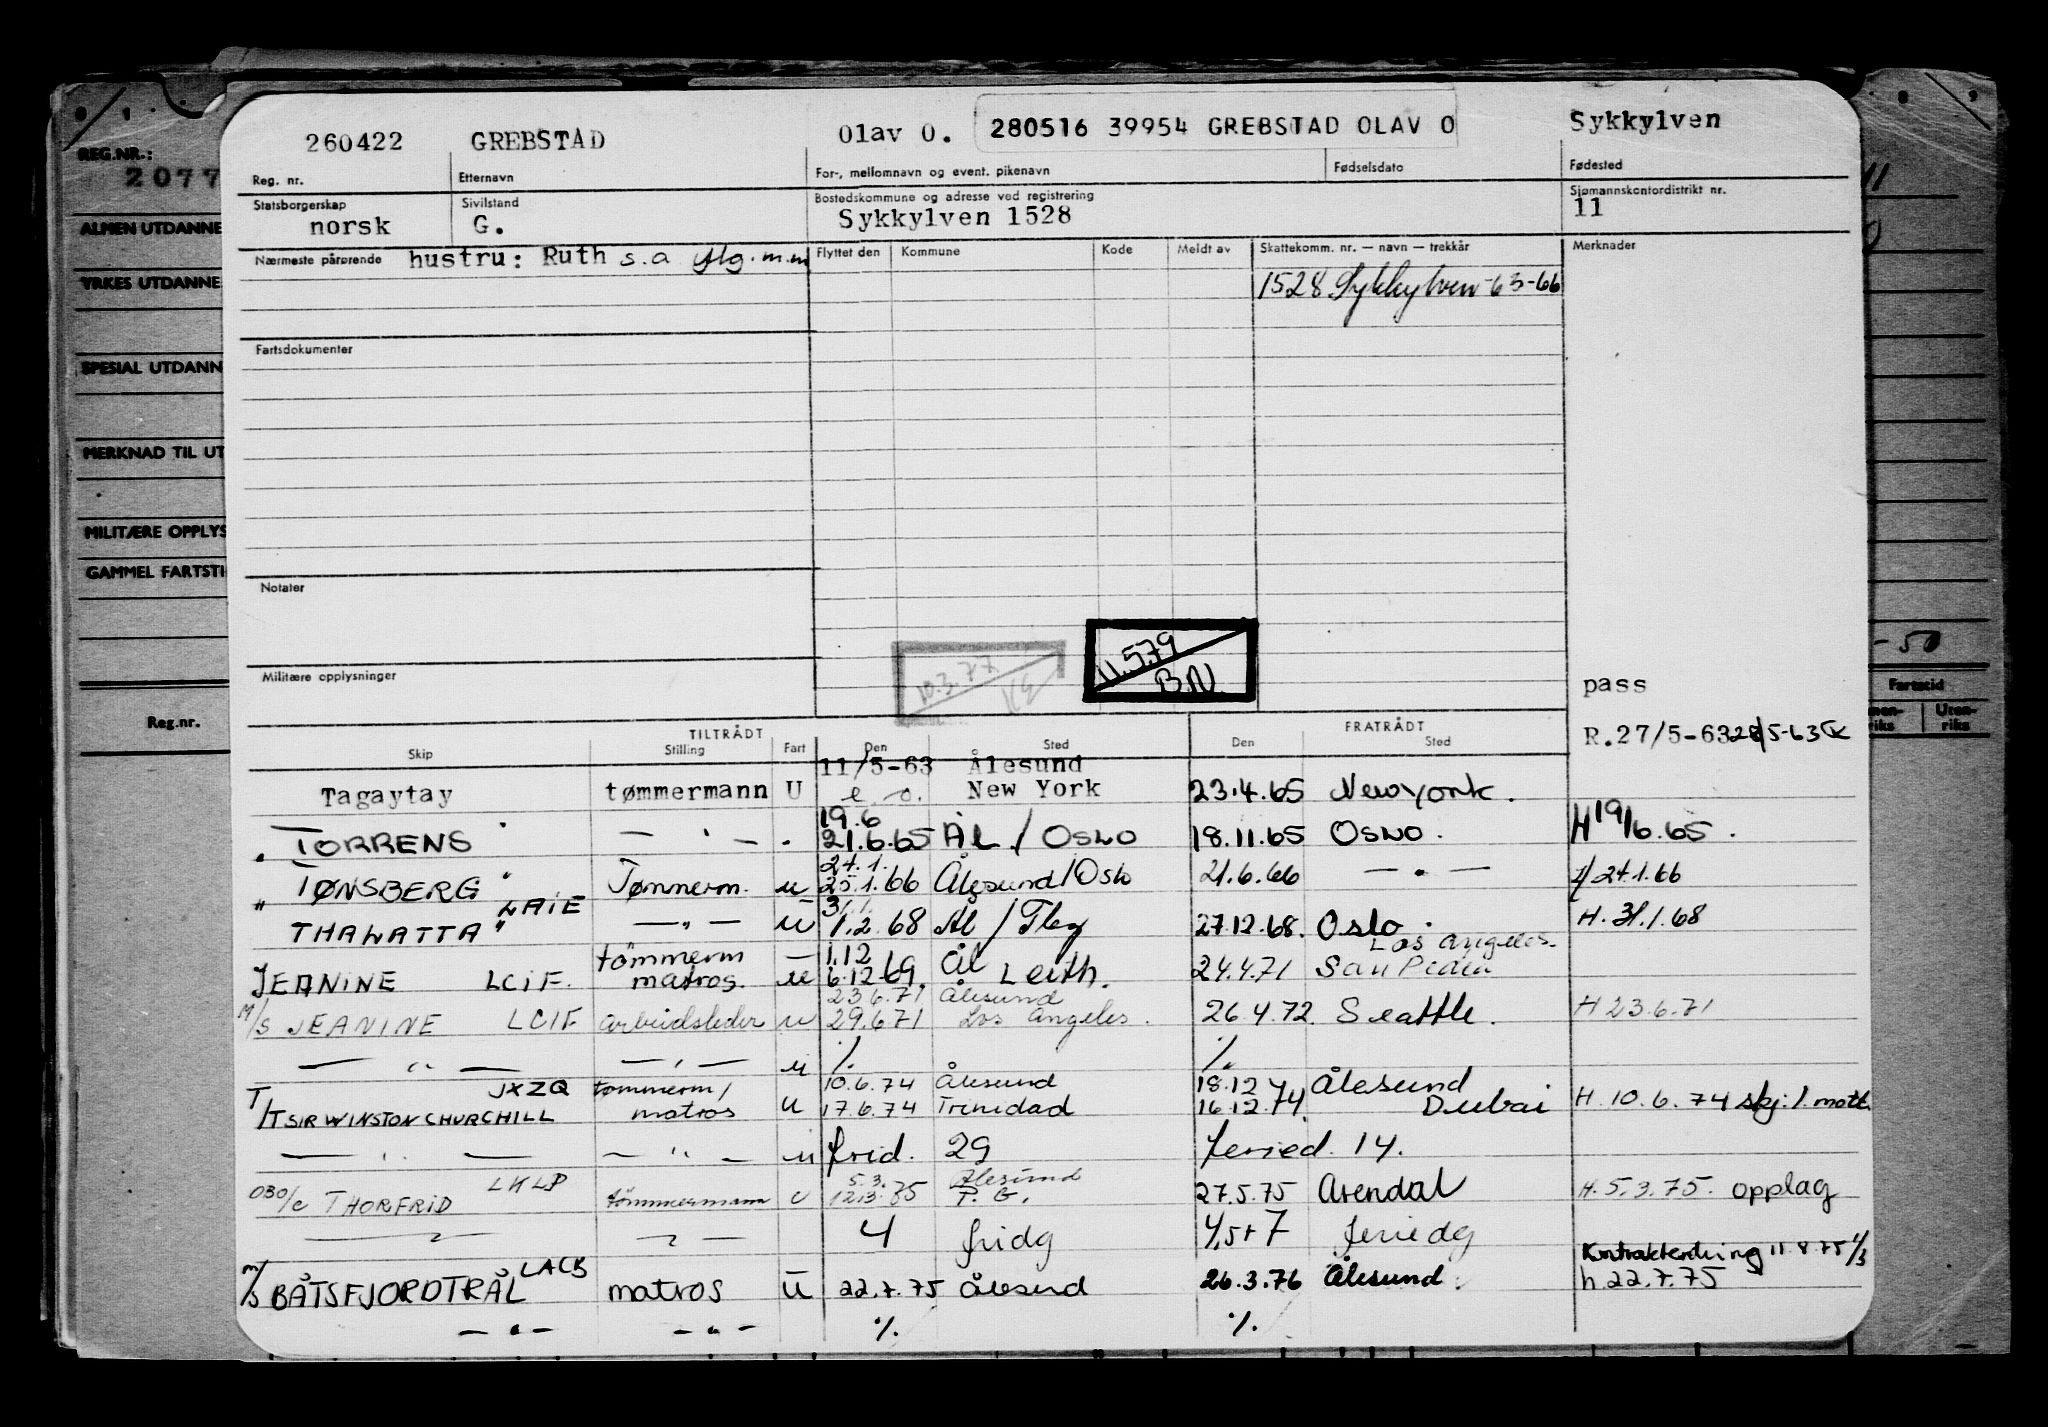 260422 GREBSTAD Olav O. 280516 39954 GREBSTAD OLAV O Sykkylven
Reg. nr. Etternavn For-, mellomnavn og event. pikenavn Fødselsdato Fødested
Statsborgerskap Sivilstand Bostedskommune og adresse ved registrering Sjømannskontordistrikt nr.
norsk G. Sykkylven 1528 11
Nærmeste pårørende hustru: Ruth s.a flg.m.m Flyttet den Kommune Kode Meldt av Skattekomm. nr. — navn — trekkår Merknader
1528 Sykkylven 63-66
Fartsdokumenter
Notater
10.3.77
11.5.79
B.N.
Militære opplysninger
pass
R.27/5-63 28/5-63
TILTRÅDT FRATRÅDT
Skip Stilling Fart Den Sted Den Sted
11/5-63 Ålesund
Tagaytay tømmermann U e. o. New York 23.4.65 New York.
19.6
" TORRENS — " — " 21.6.65 ÅL / OSLO 18.11.65 OSLO. H 19/6.65.
24.1.
" TØNSBERG Tømmerm. u 25.1.66 Ålesund/Oslo 21.6.66 — " — 24.1.66
LAIE 31.1.
THALATTA — " — U 1.2.68 Ål / Fley 27.12.68. Oslo. H. 31.1.68
tømmerm — 1.12 Ål Los Angeles.
JEANINE LCIF. matros. u 6.12.69. Leith. 24.4.71 San Pedro
23.6.71 Ålesund
M/S JEANINE LCIF arbeidsleder u 29.6.71 Los Angeles. 26.4.72. Seattle. H 23.6.71
— " — — " — u %. %.
JXZQ tømmerm/ 10.6.74 Ålesund 18.12.74 Ålesund
T/T SIR WINSTON CHURCHILL matros U 17.6.74 Trinidad 16.12.74 Dubai H. 10.6.74 skj: 1. mott.
— " — — " — u frid. 29 feried. 14.
LKLP 5.3. Ålesund
OBO/C THORFRID tømmermann U 12.3.75 T. G. 27.5.75 Arendal H. 5.3.75. opplag
— " — — " — 4 fridg 4,5+7 feriedg
Kontraktendring 11.8.75 1/3
M/S BÅTSFJORDTRÅL LACB matros U 22.7.75 Ålesund 26.3.76 Ålesund. h.22.7.75
— " — — " — %. %.
REG.NR.:
2077
ALMEN UTDANNE
YRKES UTDANNE
SPESIAL UTDANN
MERKNAD TIL UT
MILITÆRE OPPLYS
GAMMEL FARTSTI
Reg.nr.
11
0
-50
Fartstid
nen-riks Uten-riks